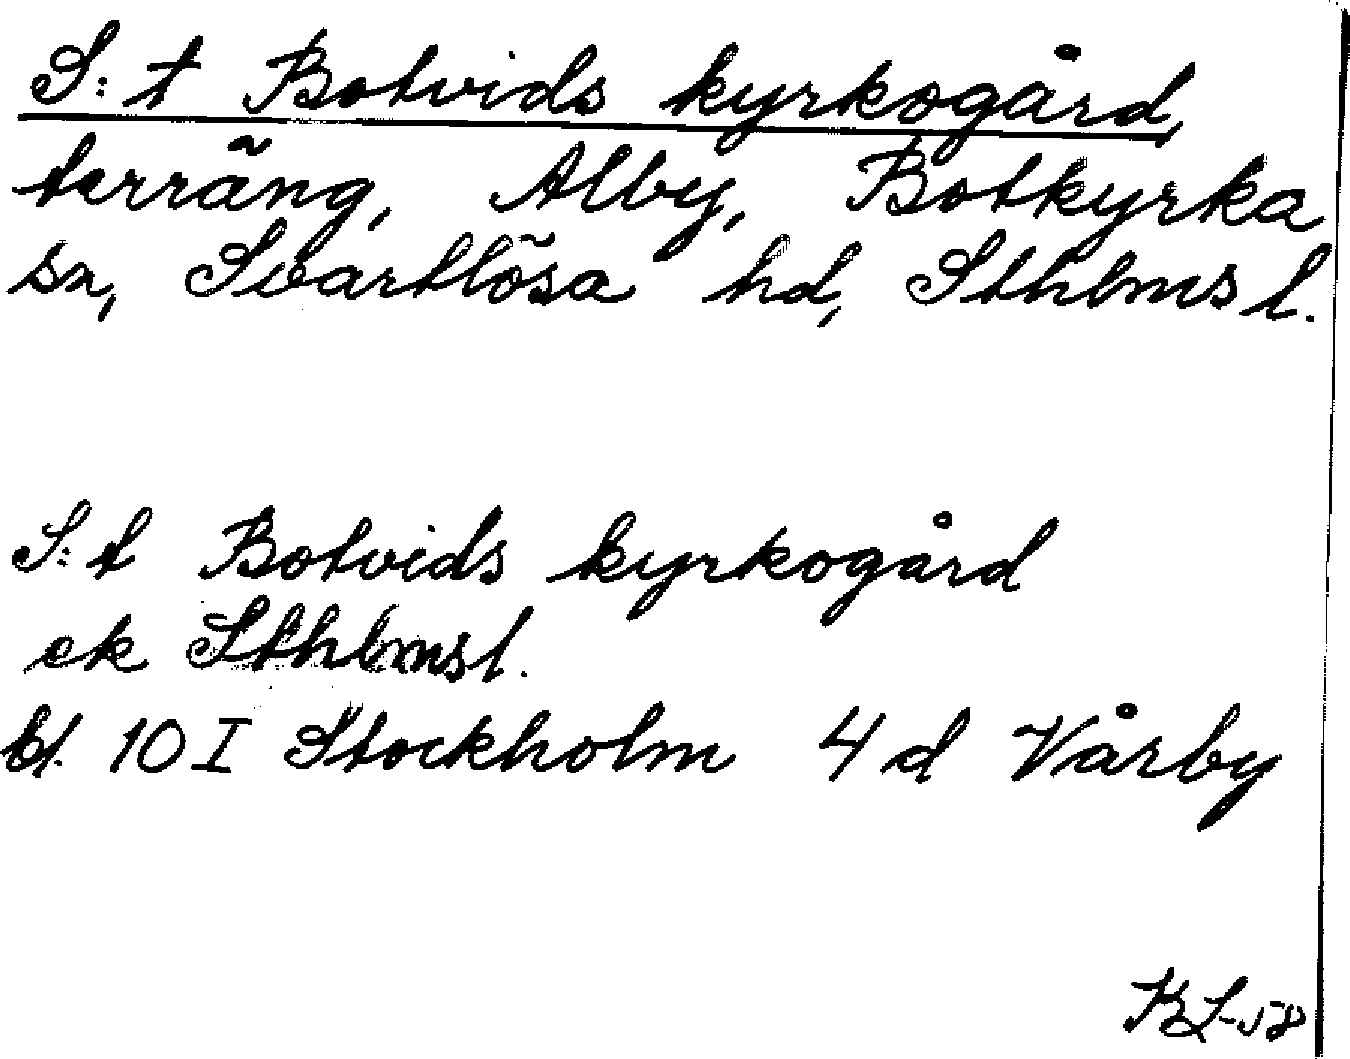 S:t Botvids kyrkogård,
terräng, Alby, Botkyrka
sn, Svartlösa hd, Sthlms l.
S:t Botvids kyrkogård
ek Sthlmsl.
bl. 10 I Stockholm 4 d Vårby
KL-58